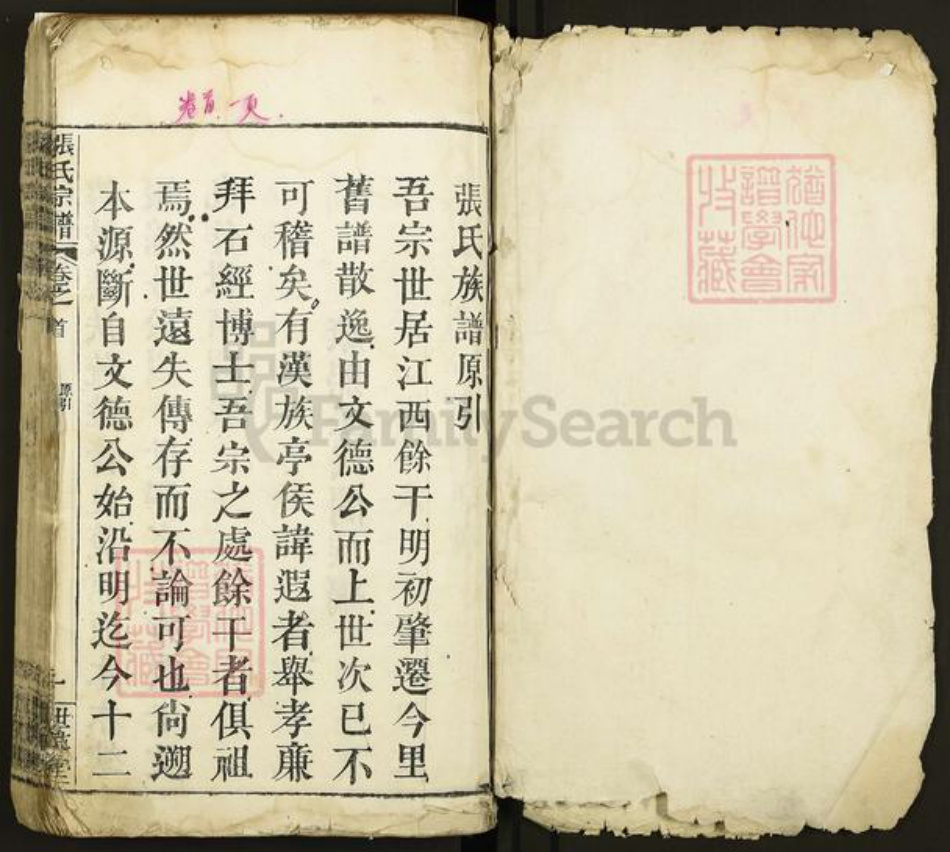 張氏族譜原引
吾宗世居江西餘干明初肇遷今里
舊譜散逸由文德公而上世次已不
可稽矣有漢族亭侯諱遐者舉孝廉
拜石經博士吾宗之處餘干者俱祖
焉然世遠失傳存而不論可也尙遡
本源斷自文德公始沿明迄今十二
張氏宗譜
卷之首
原引
一
卷首 一頁.
譜學會
收藏
FamilySearch